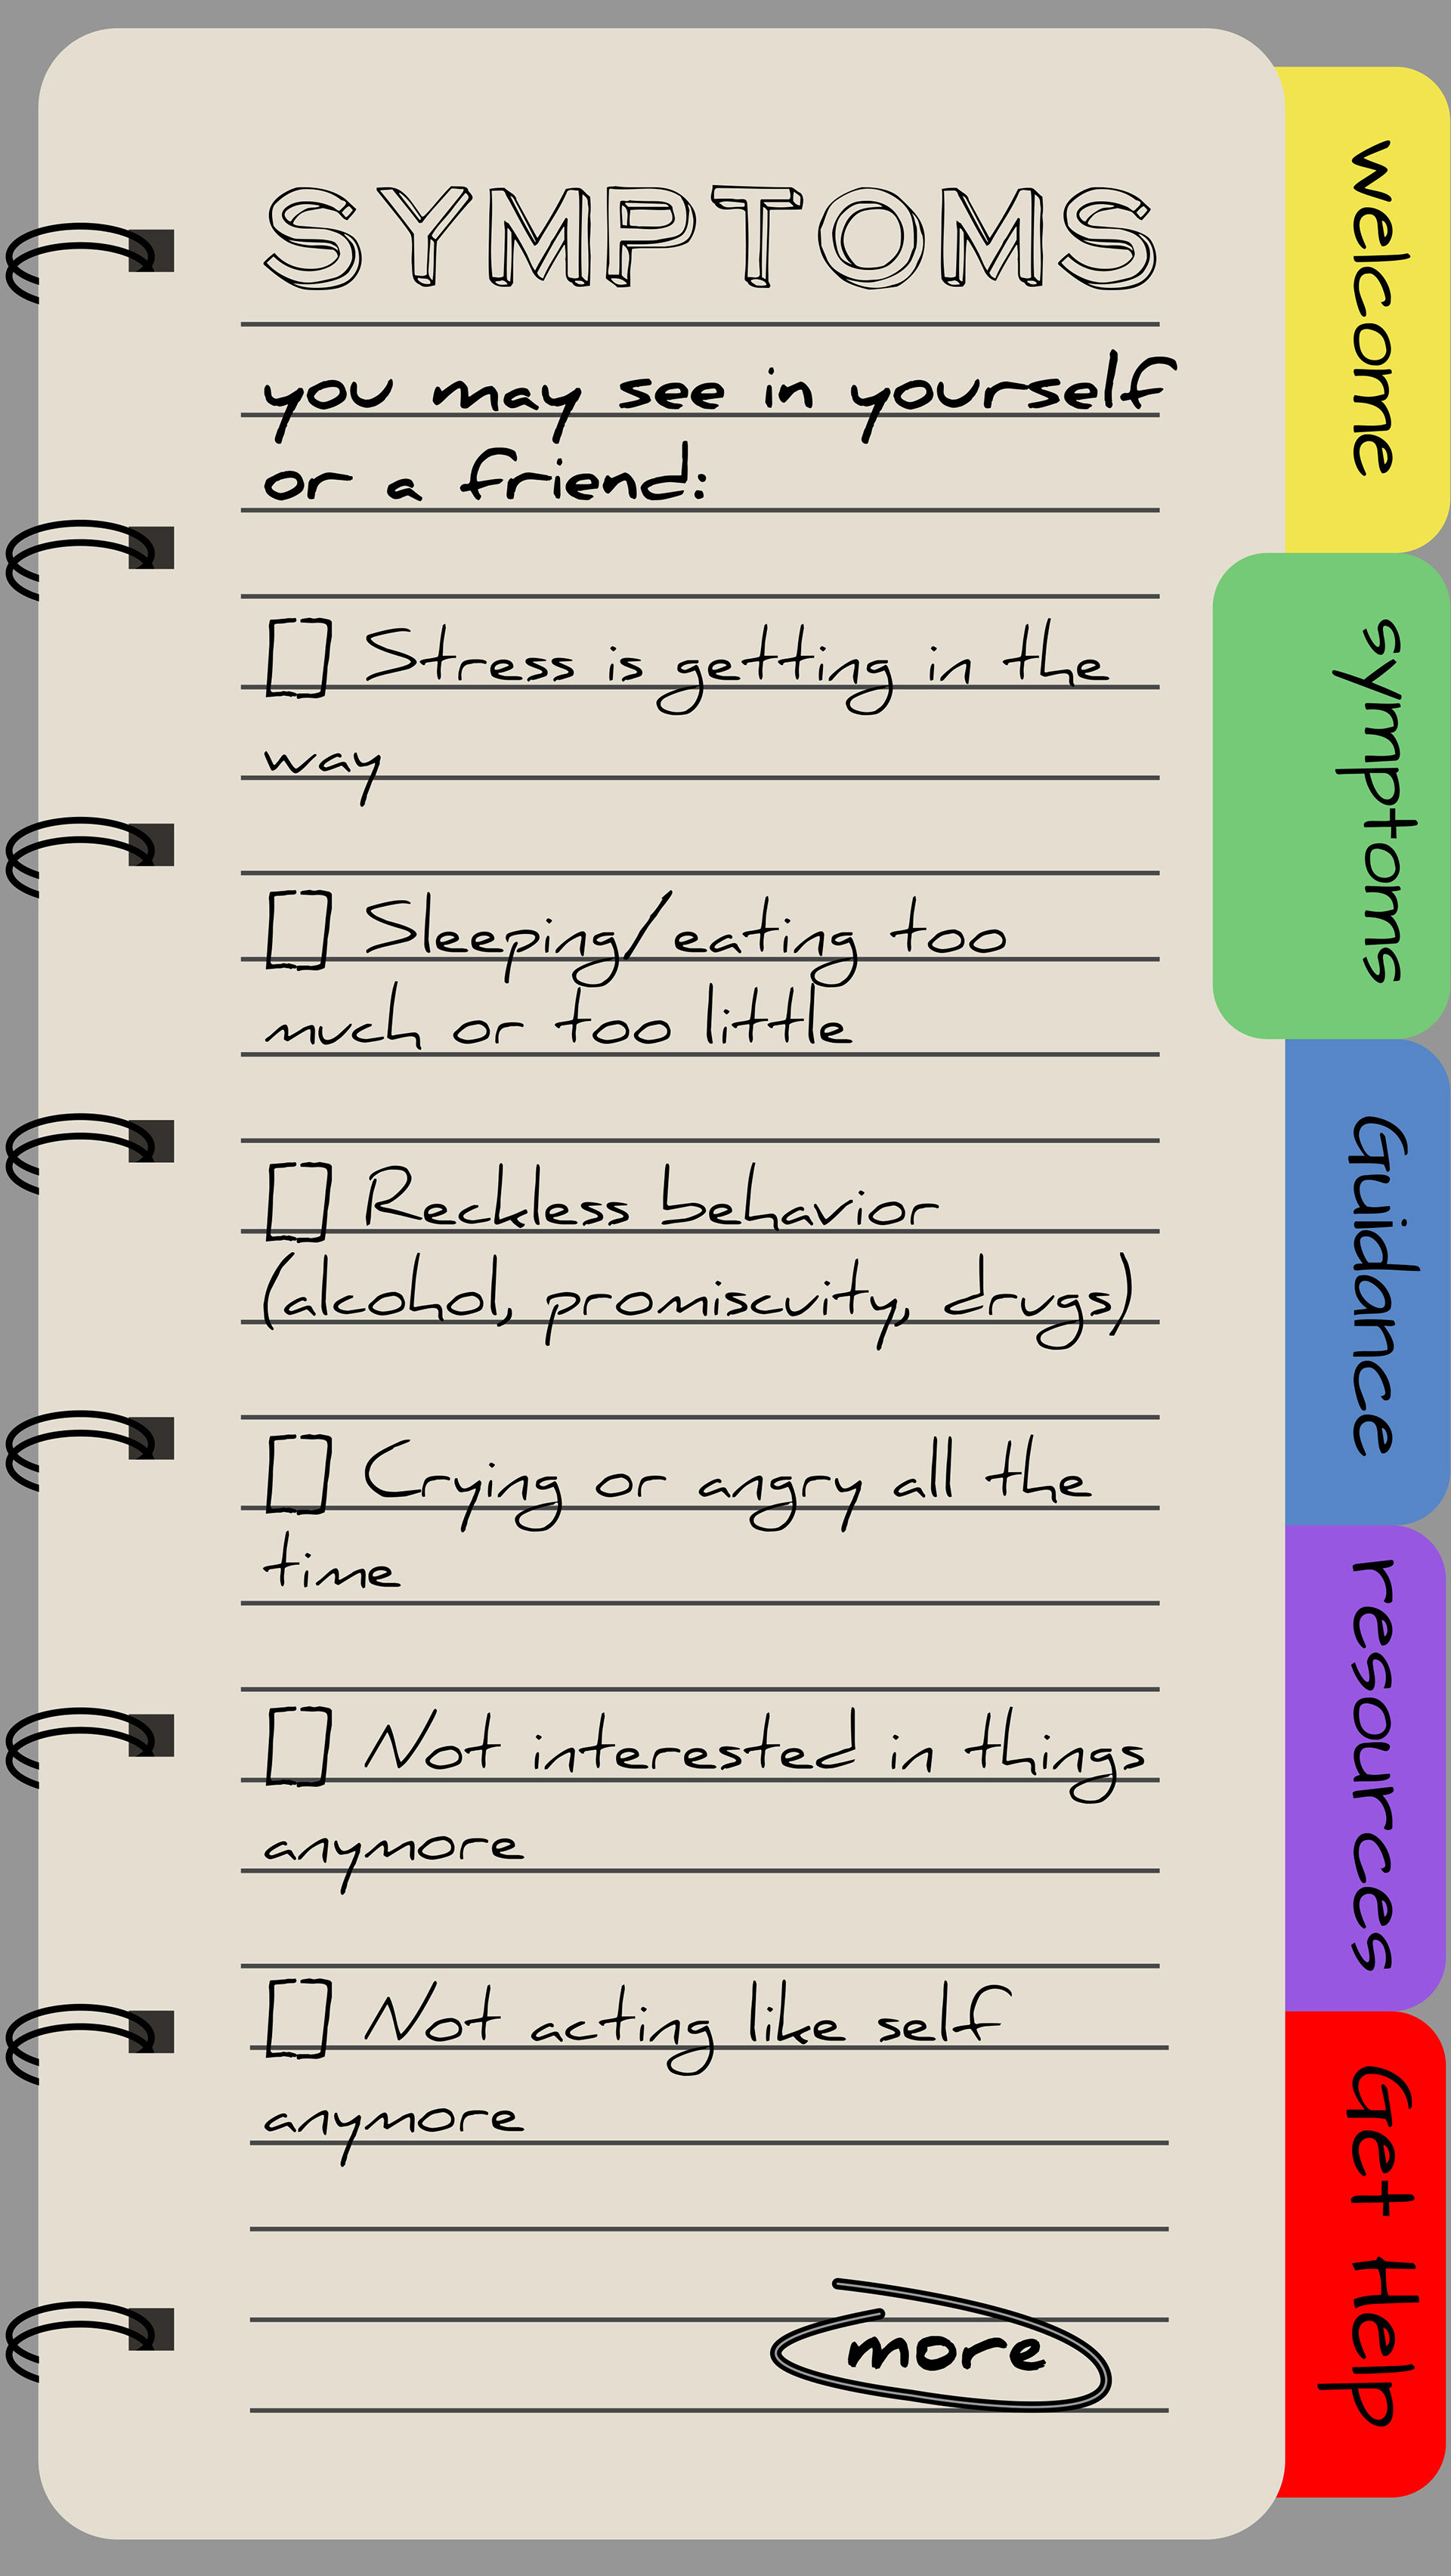 SYMPTOMS
you may see in yourself
or a friend:
Stress is getting in the
way
Sleeping/eating too
much or too little
Reckless behavior
(alcohol, promiscuity, drugs)
Crying or angry all the
time
Not interested in things
anymore
Not acting like self
anymore
more
welcome
symptoms
Guidance
resources
Get Help